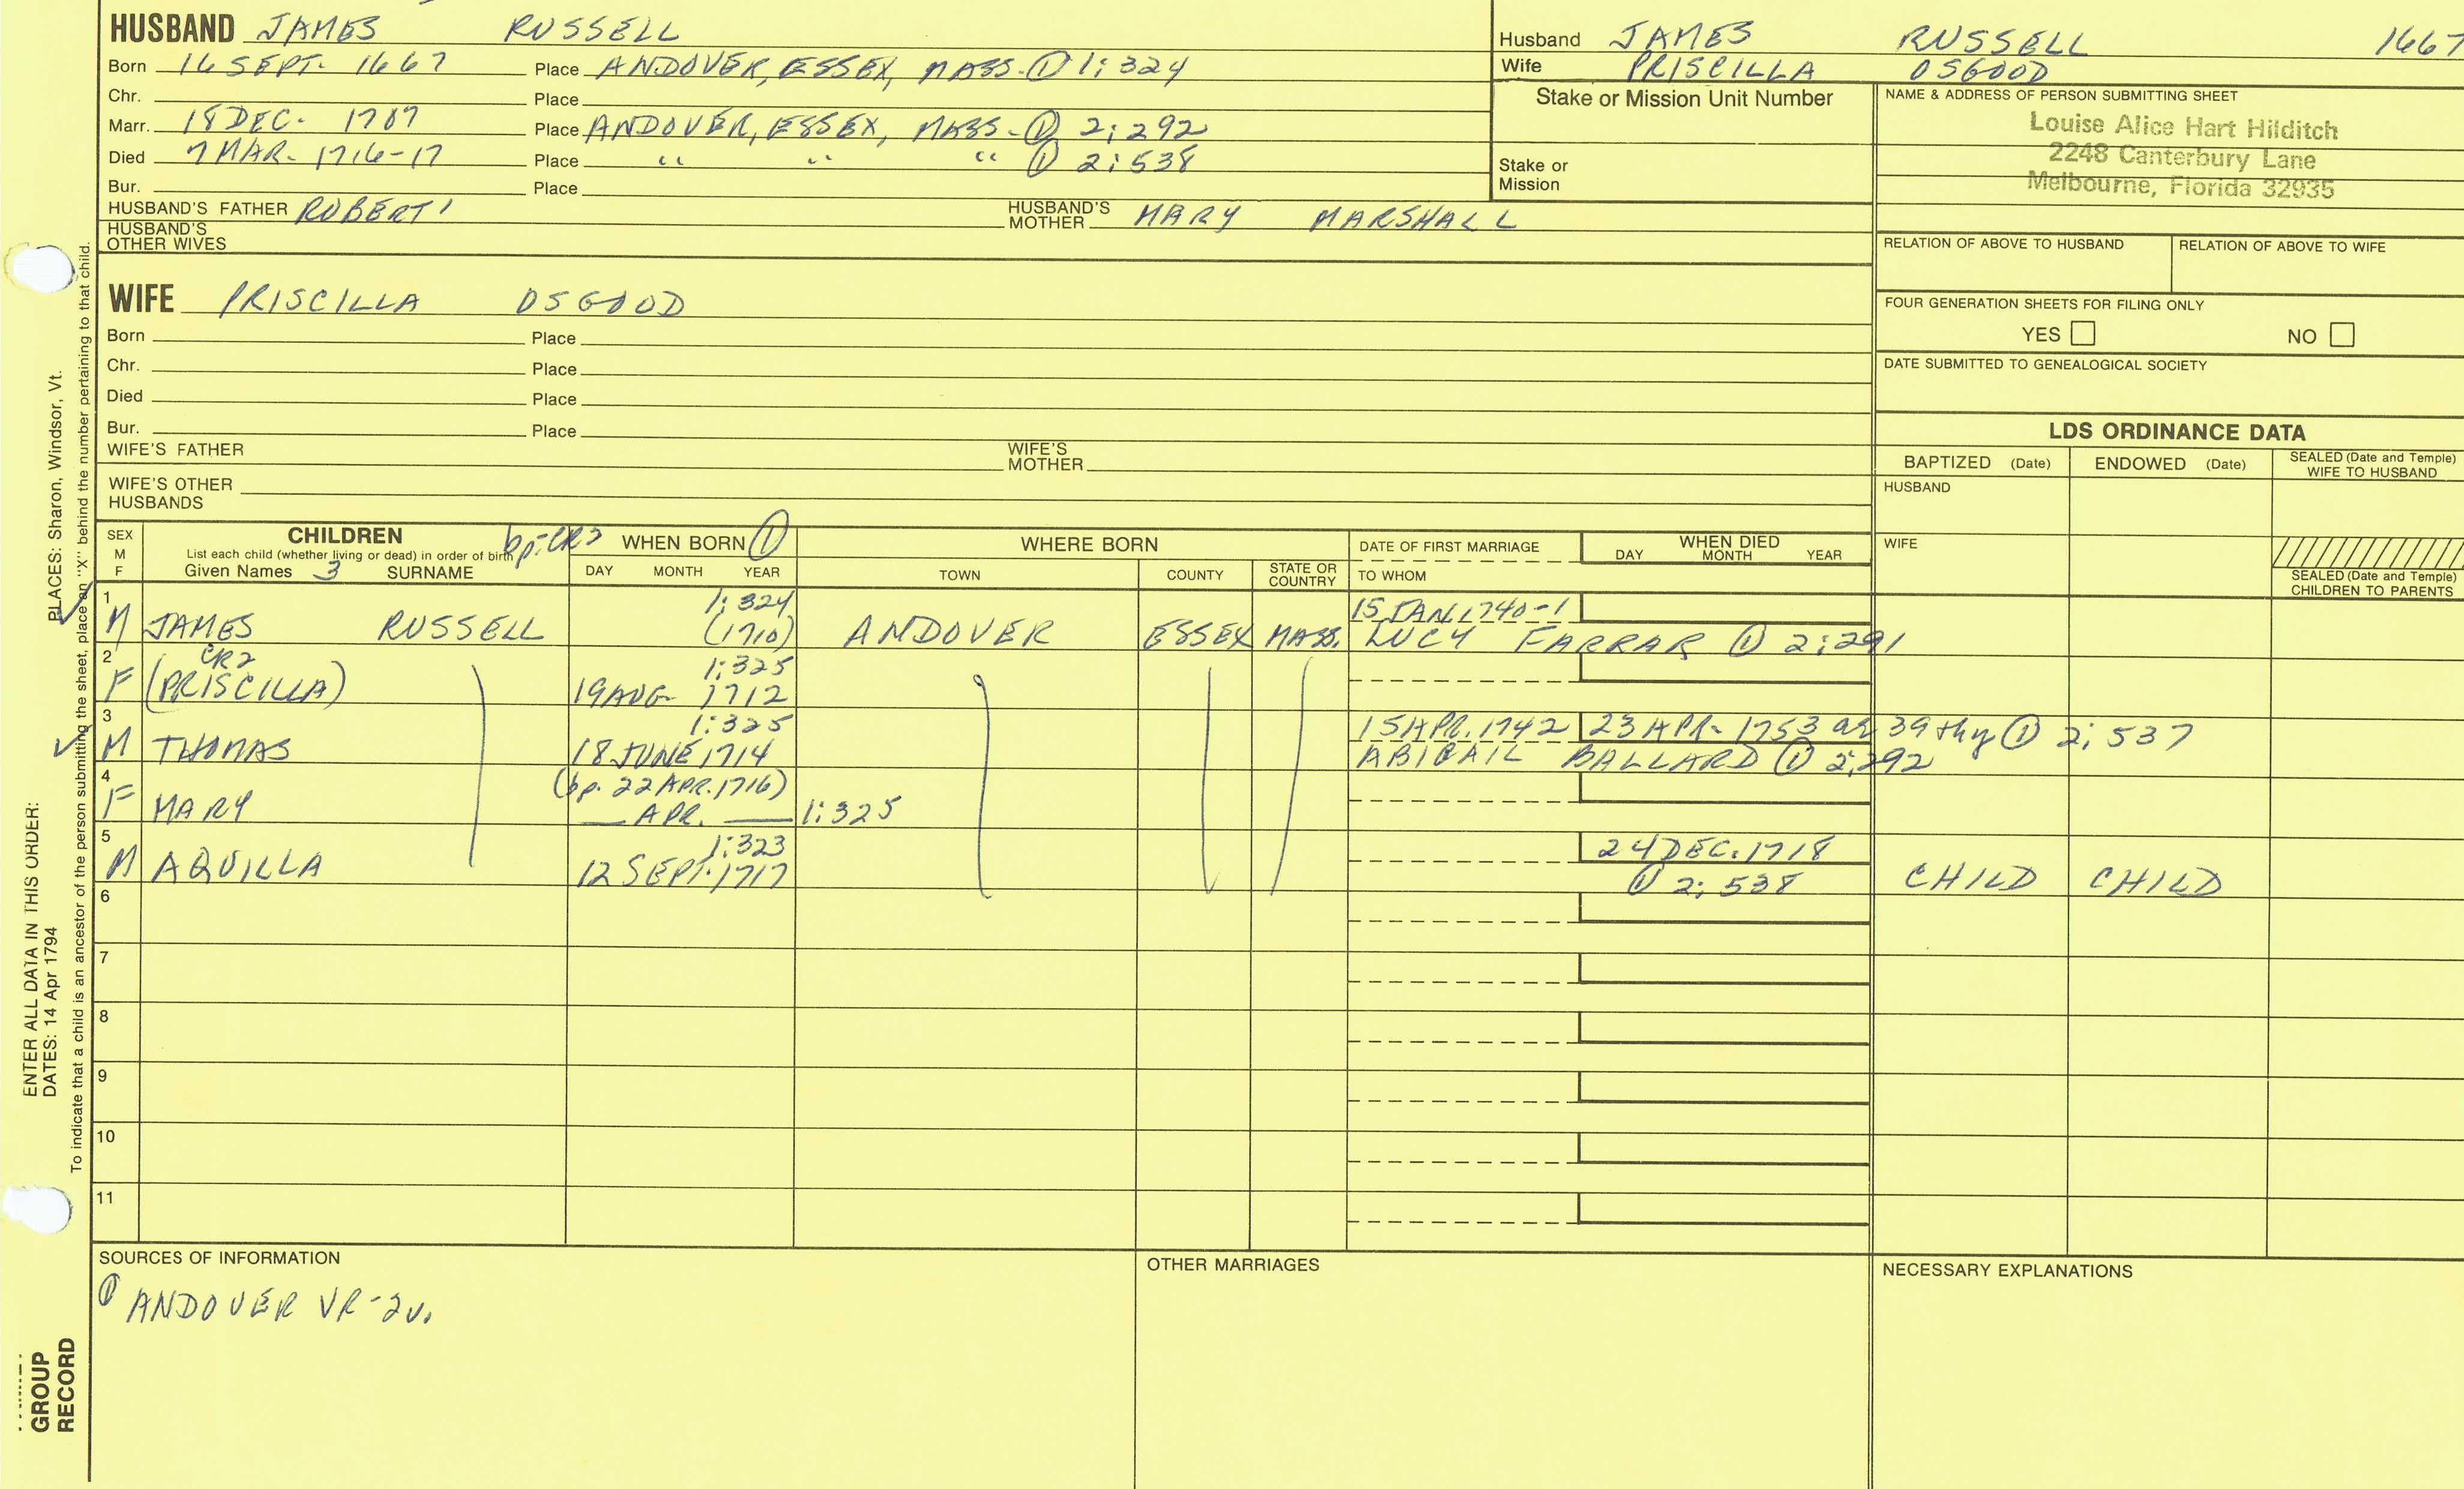 HUSBAND JAMES RUSSELL
Born 16 SEPT. 1667 Place ANDOVER, ESSEX, MASS. ① 1:324
Chr. Place
Marr. 18 DEC. 1707 Place ANDOVER, ESSEX, MASS. ① 2:292
Died 7 MAR. 1716-17 Place " " " ① 2:538
Bur. Place
HUSBAND'S FATHER ROBERT¹ HUSBAND'S MOTHER MARY MARSHALL
HUSBAND'S OTHER WIVES
Husband JAMES RUSSELL 1667
Wife PRISCILLA OSGOOD
Stake or Mission Unit Number
Stake or Mission
NAME & ADDRESS OF PERSON SUBMITTING SHEET
Louise Alice Hart Hilditch
2248 Canterbury Lane
Melbourne, Florida 32935
RELATION OF ABOVE TO HUSBAND RELATION OF ABOVE TO WIFE
FOUR GENERATION SHEETS FOR FILING ONLY
YES NO
DATE SUBMITTED TO GENEALOGICAL SOCIETY
WIFE PRISCILLA OSGOOD
Born Place
Chr. Place
Died Place
Bur. Place
WIFE'S FATHER WIFE'S MOTHER
WIFE'S OTHER HUSBANDS
LDS ORDINANCE DATA
BAPTIZED (Date) ENDOWED (Date) SEALED (Date and Temple) WIFE TO HUSBAND
HUSBAND
WIFE
SEALED (Date and Temple) CHILDREN TO PARENTS
SEX M F
CHILDREN
List each child (whether living or dead) in order of birth
Given Names 3 SURNAME
bp-CR2 WHEN BORN ①
DAY MONTH YEAR
WHERE BORN
TOWN COUNTY STATE OR COUNTRY
DATE OF FIRST MARRIAGE
TO WHOM
WHEN DIED
DAY MONTH YEAR
1 1:324 15 JAN. 1740-1
M JAMES RUSSELL (1710) ANDOVER ESSEX MASS. LUCY FARRAR ① 2:291
2 CR2 1:325
F (PRISCILLA) 19 AUG. 1712
3 1:325 15 APR. 1742 23 APR. 1753 39 ① 2:537
M THOMAS 18 JUNE 1714 ABIGAIL BALLARD ① 2:292
4 (bp. 22 APR. 1716)
F MARY — APR. — 1:325
5 1:323 24 DEC. 1718
M AQUILLA 12 SEPT. 1717 ① 2:538 CHILD CHILD
6
7
8
9
10
11
SOURCES OF INFORMATION
① ANDOVER VR-2v.
OTHER MARRIAGES
NECESSARY EXPLANATIONS
ENTER ALL DATA IN THIS ORDER:
DATES: 14 Apr 1794 PLACES: Sharon, Windsor, Vt.
To indicate that a child is an ancestor of the person submitting the sheet, place an "X" behind the number pertaining to that child.
GROUP
RECORD